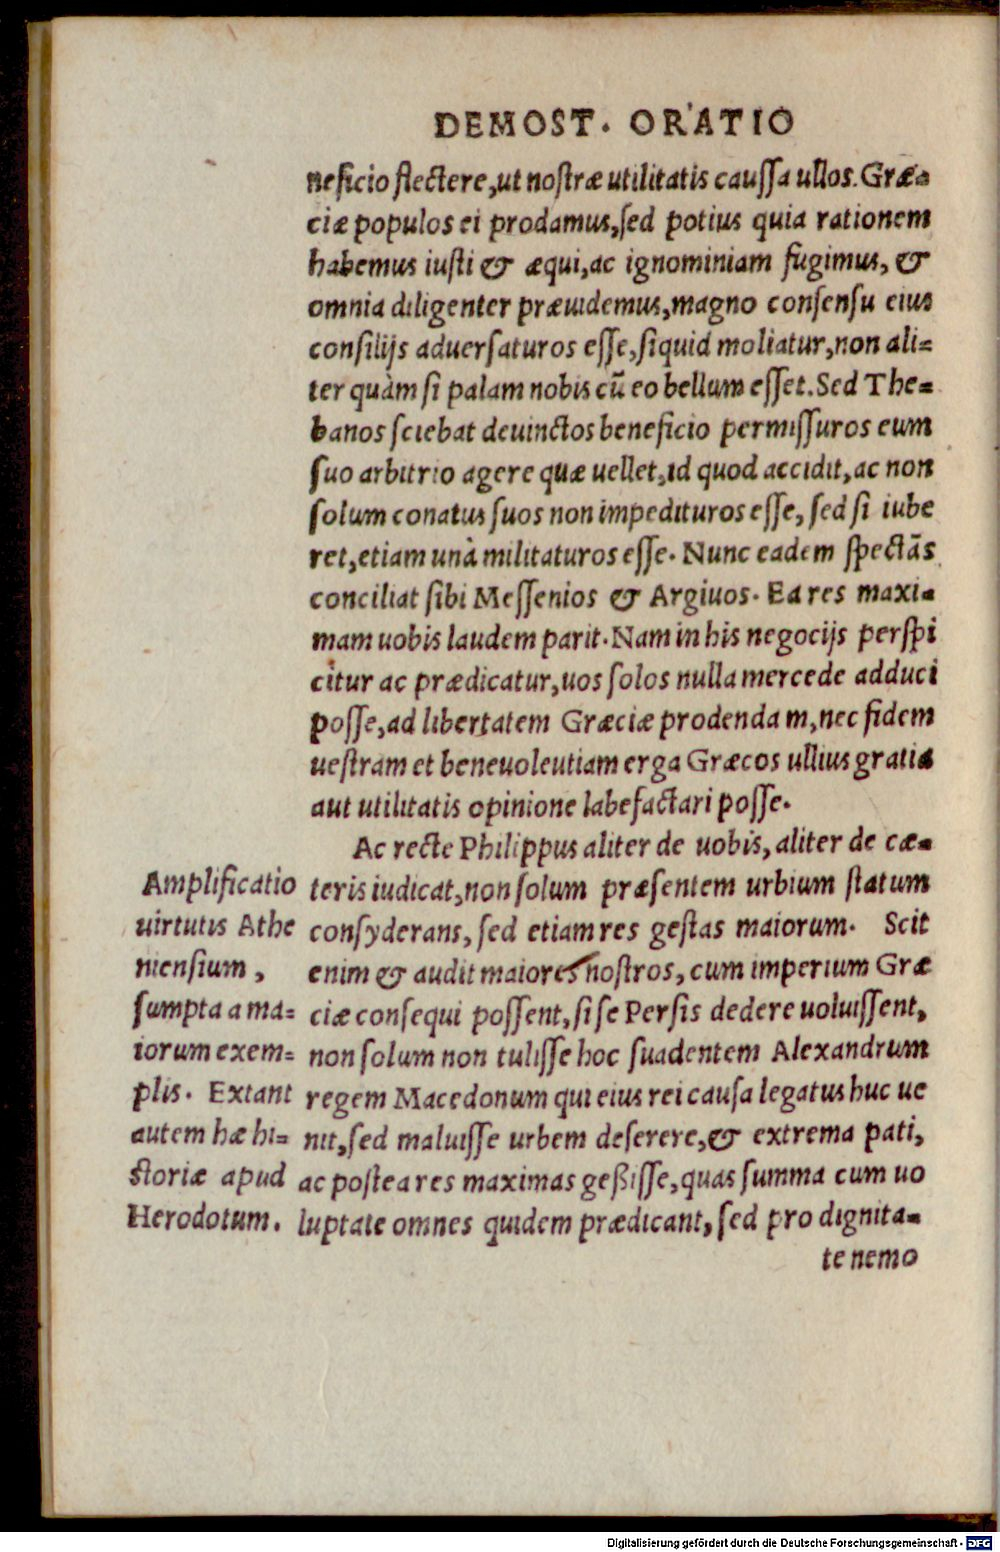 DEMOST. ORATIO
neficio flectere, ut nostræ utilitatis caussa ullos. Græ=
ciæ populos ei prodamus, sed potius quia rationem
habemus iusti & æqui, ac ignominiam fugimus, &
omnia diligenter præuidemus, magno consensu eius
consilijs aduersaturos esse, siquid moliatur, non ali=
ter quàm si palam nobis cũ eo bellum esset. Sed The=
banos sciebat deuinctos beneficio permissuros eum
suo arbitrio agere quæ uellet, id quod accidit, ac non
solum conatus suos non impedituros esse, sed si iube
ret, etiam unà militaturos esse. Nunc eadem spectãs
conciliat sibi Messenios & Argiuos. Ea res maxi=
mam uobis laudem parit. Nam in his negocijs perspi
citur ac prædicatur, uos solos nulla mercede adduci
posse, ad libertatem Græciæ prodendam, nec fidem
uestram et beneuoleutiam erga Græcos ullius gratia
aut utilitatis opinione labefactari posse.
Ac recte Philippus aliter de uobis, aliter de cæ=
teris iudicat, non solum præsentem urbium statum
consyderans, sed etiam res gestas maiorum. Scit
enim & audit maiores nostros, cum imperium Græ
ciæ consequi possent, si se Persis dedere uoluissent,
non solum non tulisse hoc suadentem Alexandrum
regem Macedonum qui eius rei causa legatus huc ue
nit, sed maluisse urbem deserere, & extrema pati,
ac postea res maximas geßisse, quas summa cum uo
luptate omnes quidem prædicant, sed pro dignita=
te nemo
Amplificatio
uirtutis Athe
niensium,
sumpta a ma=
iorum exem=
plis. Extant
autem hæ hi=
storiæ apud
Herodotum.
Digitalisierung gefördert durch die Deutsche Forschungsgemeinschaft - DFG